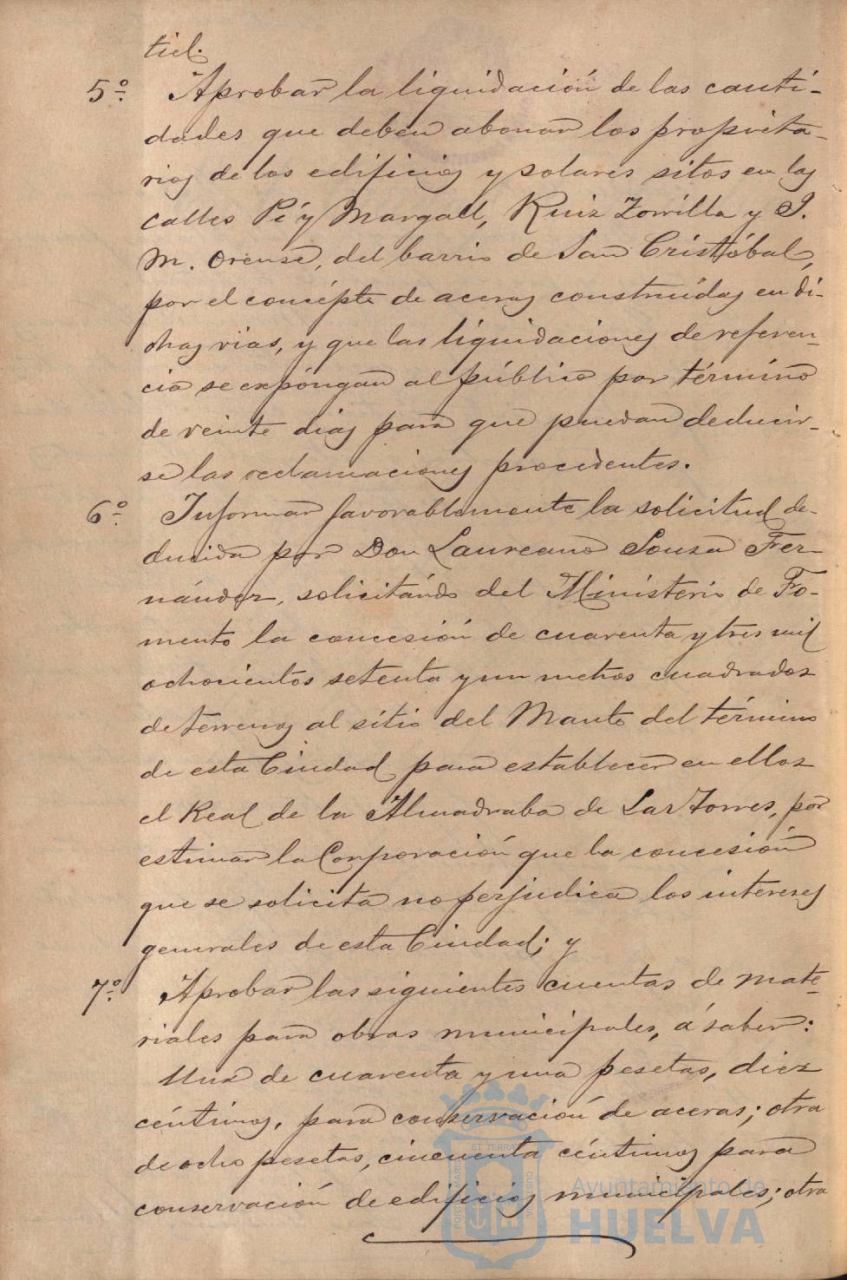 tiel.
5º. Aprobar la liquidación de las canti-
dades que deben abonar los propieta-
rios de los edificios y solares sitos en las
calles Pí y Margall, Ruiz Zorrilla y J.
M. Orense, del barrio de San Cristóbal,
por el concépto de aceras construidas en di-
chas vias, y que las liquidaciones de referen-
cia se expóngan al público por término
de veinte dias para que puedan deducir-
se las reclamaciones procedentes.
6º. Informar favorablemente la solicitud de-
ducida por Don Laureano Souza Fer-
nández, solicitándo del Ministerio de Fo-
mento la concesión de cuarenta y tres mil
ochocientos setenta y un metros cuadrados
de terrenos al sitio del Manto del término
de esta Ciudad para establecer en ellos
el Real de la Almadraba de Las Torres, por
estimar la Corporación que la concesión
que se solicita no perjudica los intereses
generales de esta Ciudad; y
7º. Aprobar las siguientes cuentas de mate-
riales para obras municipales, á saber:
Una de cuarenta y una pesetas, diez
céntimos, para conservación de aceras; otra
de ocho pesetas, cincuenta céntimos para
conservación de edificios municipales; otra
Ayuntamiento de
HUELVA